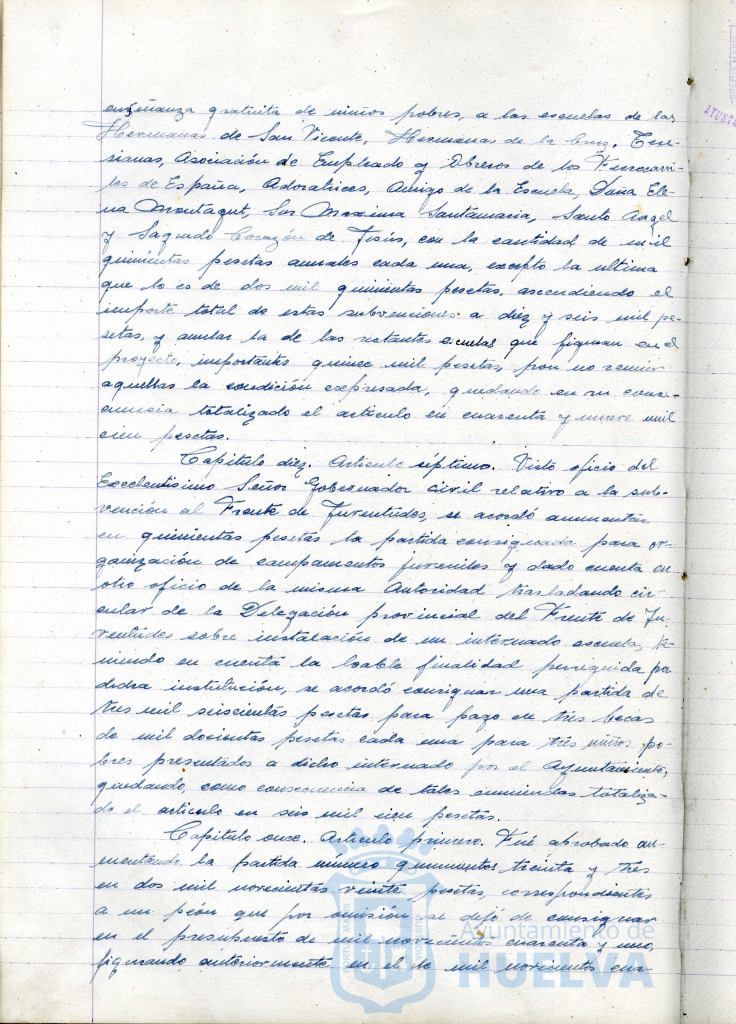 enseñanza gratuita de niños pobres, a las escuelas de las
Hermanas de San Vicente, Hermanas de la Cruz, Tere-
sianas, Asociación de Empleado y Obreros de los Ferrocarri-
les de España, Adoratrices, Amigo de la Escuela, Doña Ele-
na Montagut, Sor Maxima Santamaria, Santo Angel
y Sagrado Corazón de Jesús, con la cantidad de mil
quinientas pesetas anuales cada una, excepto la ultima
que lo es de dos mil quinientas pesetas, ascendiendo el
importe total de estas subvenciones a diez y seis mil pe-
setas, y anular la de las restantes escuelas que figuran en el
proyecto, importantes quince mil pesetas, por no reunir
aquellas la condición expresada, quedando en su conse-
cuencia totalizado el articulo en cuarenta y nueve mil
cien pesetas.
Capitulo diez. Articulo séptimo. Visto oficio del
Excelentisimo Señor Gobernador civil relativo a la sub-
vención al Frente de Juventudes, se acordó aumentar
en quinientas pesetas la partida consignada para or-
ganización de campamentos juveniles y dado cuenta en
otro oficio de la misma Autoridad trasladando cir-
cular de la Delegación provincial del Frente de Ju-
ventudes sobre instalación de un internado escuela, te-
niendo en cuenta la loable finalidad perseguida por
dicha institución, se acordó consignar una partida de
tres mil seiscientas pesetas para pago de tres becas
de mil docientas pesetas cada una para tres niños po-
bres presentados a dicho internado por el Ayuntamiento,
quedando, como consecuencia de tales enmiendas totaliza-
do el articulo en seis mil cien pesetas.
Capitulo once. Articulo primero. Fué aprobado au-
mentando la partida número quinientos treinta y tres
en dos mil novecientas veinte pesetas, correspondientes
a un peón que por omisión se dejó de consignar
en el presupuesto de mil novecientos cuarenta y uno,
figurando anteriormente en el de mil novecientos cua-
Ayuntamiento de
HUELVA